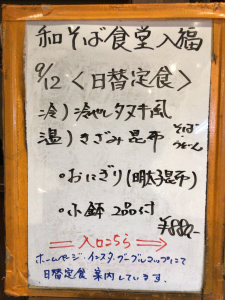 和そば食堂入福
9/12 <日替定食>
冷) 冷やしタヌキ風
温) きざみ昆布 そば・うどん
・おにぎり(明太昆布)
・小鉢 2品付
¥880-
⇒ 入口こちら ⇒
ホームページ・インスタ・グーグルマップにて
日替定食 案内しています。